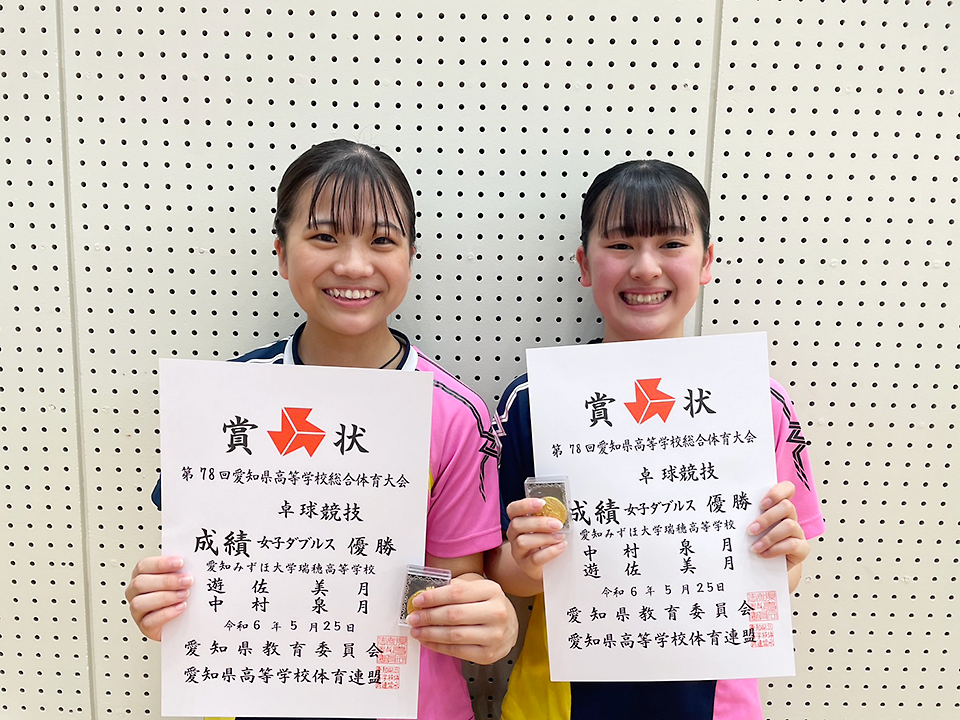 賞 状
第78回愛知県高等学校総合体育大会
卓球競技
成績 女子ダブルス 優勝
愛知みずほ大学瑞穂高等学校
遊 佐 美 月
中 村 泉 月
令和6年5月25日
愛知県教育委員会
愛知県高等学校体育連盟
賞 状
第78回愛知県高等学校総合体育大会
卓球競技
成績 女子ダブルス 優勝
愛知みずほ大学瑞穂高等学校
中 村 泉 月
遊 佐 美 月
令和6年5月25日
愛知県教育委員会
愛知県高等学校体育連盟